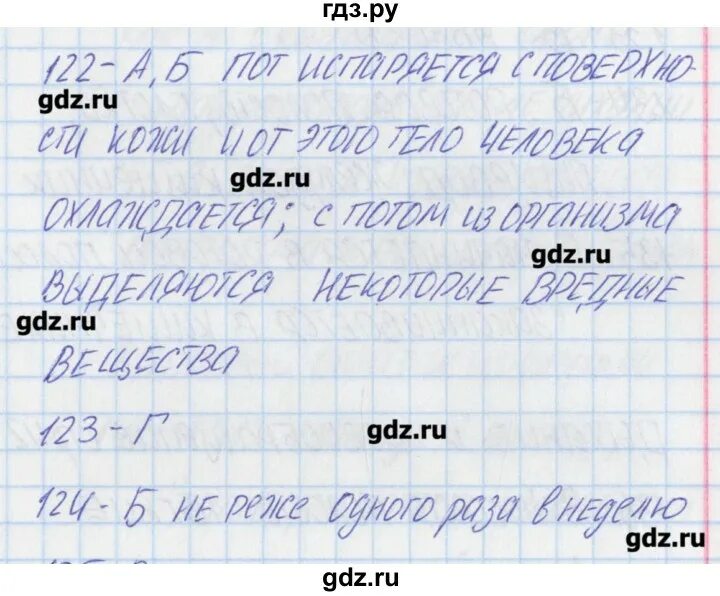 гдз.ру
122-А, Б ПОТ ИСПАРЯЕТСЯ С ПОВЕРХНО-
gdz.ru
СТИ КОЖИ И ОТ ЭТОГО ТЕЛО ЧЕЛОВЕКА
gdz.ru
ОХЛАЖДАЕТСЯ; С ПОТОМ ИЗ ОРГАНИЗМА
gdz.ru
ВЫДЕЛЯЮТСЯ НЕКОТОРЫЕ ВРЕДНЫЕ
gdz.ru
ВЕЩЕСТВА
123-Г
gdz.ru
124-Б НЕ РЕЖЕ ОДНОГО РАЗА В НЕДЕЛЮ
gdz.ru
gdz.ru